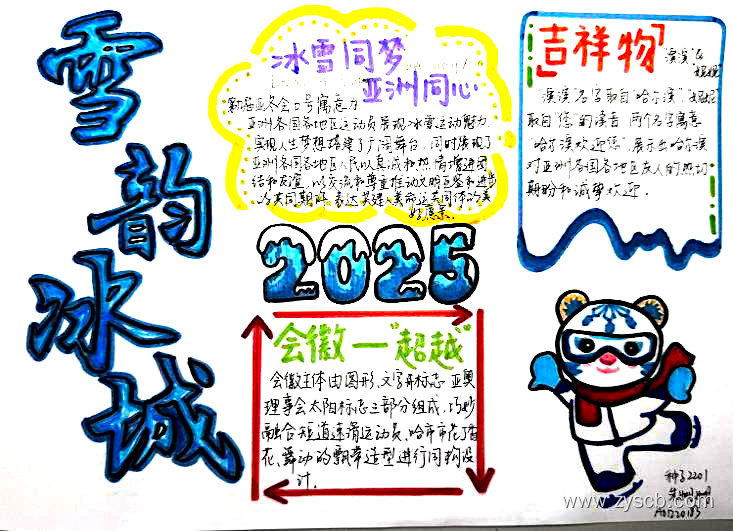 雪韵冰城
冰雪同梦
亚洲同心
新届亚冬会口号寓意为
亚洲各国各地区运动员展现冰雪运动魅力
实现人生梦想搭建了广阔舞台,同时展现了
亚洲各国各地区人民以真诚和热情增进团
结和友谊,以交流和尊重推动文明互鉴和进步
为共同期盼,表达关建人类命运共同体的美
好愿景.
吉祥物
滨滨&
妮妮
"滨滨"名字取自"哈尔滨",妮妮
取自"您"的读音,两个名字寓意
"哈尔滨欢迎您",展示出哈尔滨
对亚洲各国各地区友人的热切
期盼和诚挚欢迎.
2025
会徽一"超越"
会徽主体由图形,文字和标志 亚奥
理事会太阳标志三部分组成,巧妙
融合短道速滑运动员、哈尔市市花丁香
花、舞动的飘带造型进行同构设
计.
种子2201
A07220183
www.zyscb.com